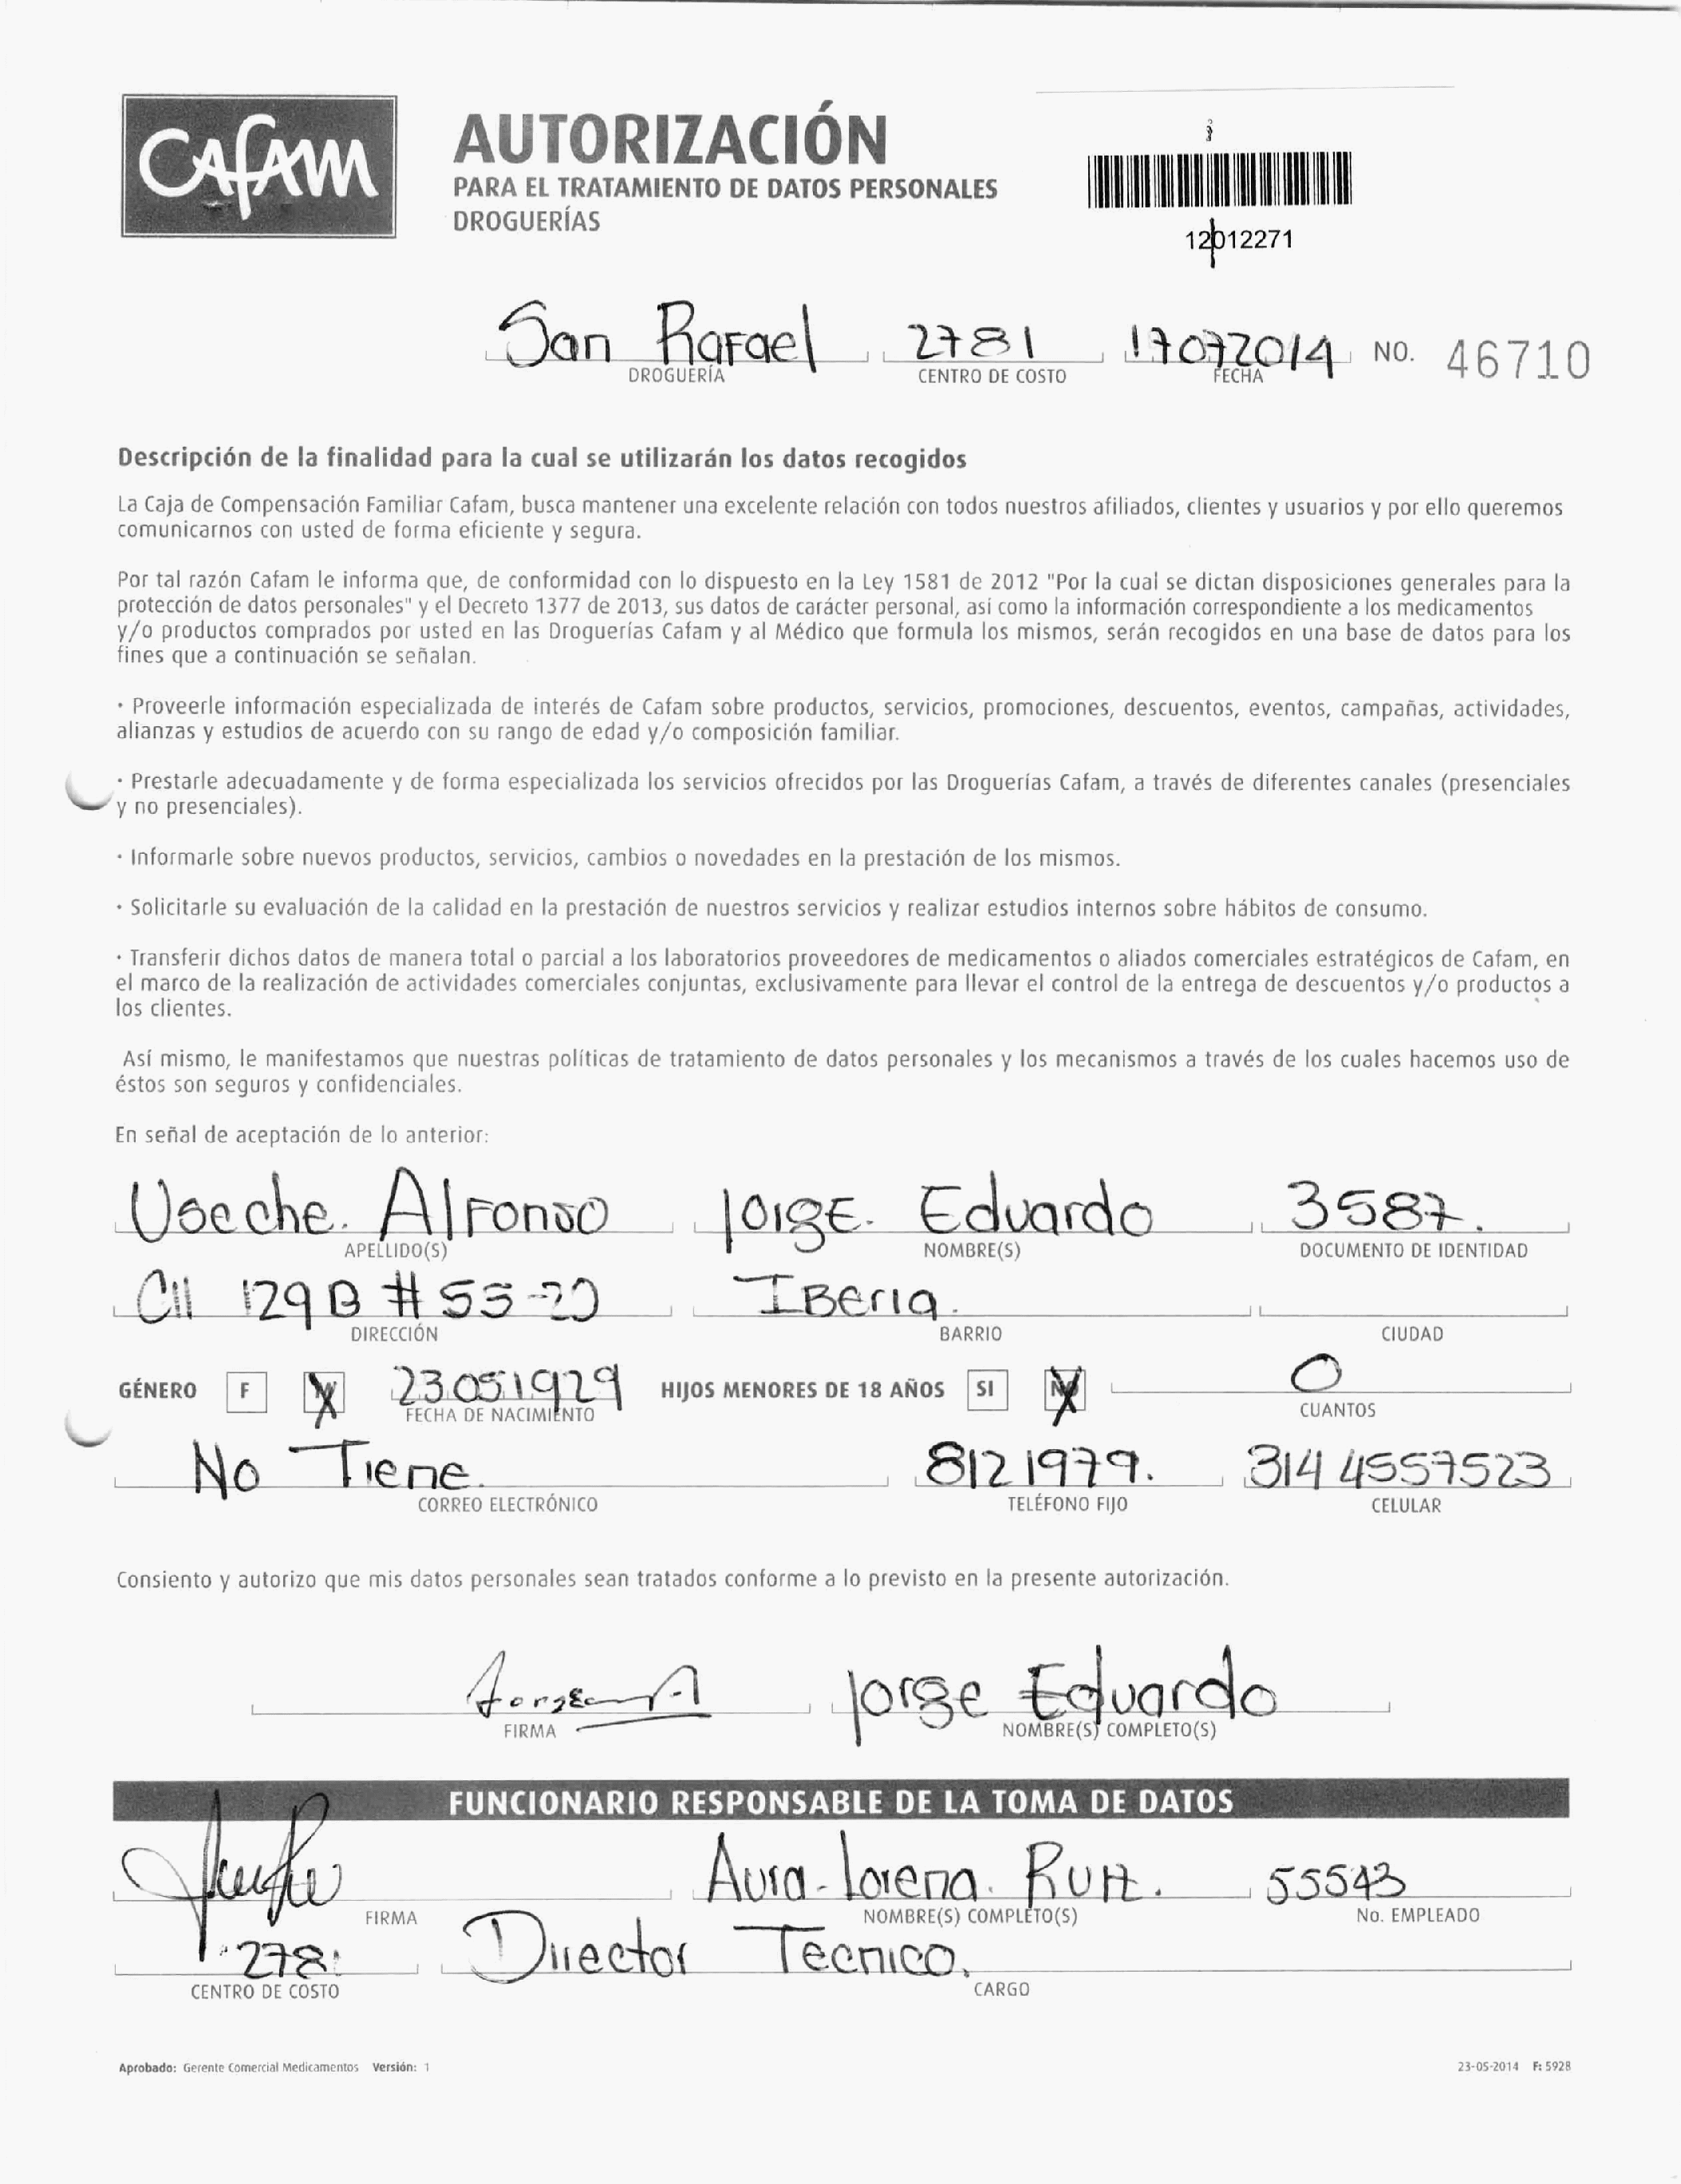 CAFAM
AUTORIZACIÓN
PARA EL TRATAMIENTO DE DATOS PERSONALES
DROGUERÍAS
12012271
San Rafael 2781 17072014 NO. 46710
DROGUERÍA CENTRO DE COSTO FECHA
Descripción de la finalidad para la cual se utilizarán los datos recogidos
La Caja de Compensación Familiar Cafam, busca mantener una excelente relación con todos nuestros afiliados, clientes y usuarios y por ello queremos
comunicarnos con usted de forma eficiente y segura.
Por tal razón Cafam le informa que, de conformidad con lo dispuesto en la Ley 1581 de 2012 "Por la cual se dictan disposiciones generales para la
protección de datos personales" y el Decreto 1377 de 2013, sus datos de carácter personal, así como la información correspondiente a los medicamentos
y/o productos comprados por usted en las Droguerías Cafam y al Médico que formula los mismos, serán recogidos en una base de datos para los
fines que a continuación se señalan.
· Proveerle información especializada de interés de Cafam sobre productos, servicios, promociones, descuentos, eventos, campañas, actividades,
alianzas y estudios de acuerdo con su rango de edad y/o composición familiar.
· Prestarle adecuadamente y de forma especializada los servicios ofrecidos por las Droguerías Cafam, a través de diferentes canales (presenciales
y no presenciales).
· Informarle sobre nuevos productos, servicios, cambios o novedades en la prestación de los mismos.
· Solicitarle su evaluación de la calidad en la prestación de nuestros servicios y realizar estudios internos sobre hábitos de consumo.
· Transferir dichos datos de manera total o parcial a los laboratorios proveedores de medicamentos o aliados comerciales estratégicos de Cafam, en
el marco de la realización de actividades comerciales conjuntas, exclusivamente para llevar el control de la entrega de descuentos y/o productos a
los clientes.
Así mismo, le manifestamos que nuestras políticas de tratamiento de datos personales y los mecanismos a través de los cuales hacemos uso de
éstos son seguros y confidenciales.
En señal de aceptación de lo anterior:
Useche. Alfonso Jorge. Eduardo 3587.
APELLIDO(S) NOMBRE(S) DOCUMENTO DE IDENTIDAD
Cll 129B # 55-20 Iberia.
DIRECCIÓN BARRIO CIUDAD
GÉNERO F M 23051929 HIJOS MENORES DE 18 AÑOS SI NO 0
FECHA DE NACIMIENTO CUANTOS
No Tiene. 8121979. 314 4557523
CORREO ELECTRÓNICO TELÉFONO FIJO CELULAR
Consiento y autorizo que mis datos personales sean tratados conforme a lo previsto en la presente autorización.
Jorge Eduardo
FIRMA NOMBRE(S) COMPLETO(S)
FUNCIONARIO RESPONSABLE DE LA TOMA DE DATOS
Aura-Lorena. Ruiz. 55543
FIRMA NOMBRE(S) COMPLETO(S) No. EMPLEADO
2781 Director Tecnico.
CENTRO DE COSTO CARGO
Aprobado: Gerente Comercial Medicamentos Versión: 1 23-05-2014 F: 5928